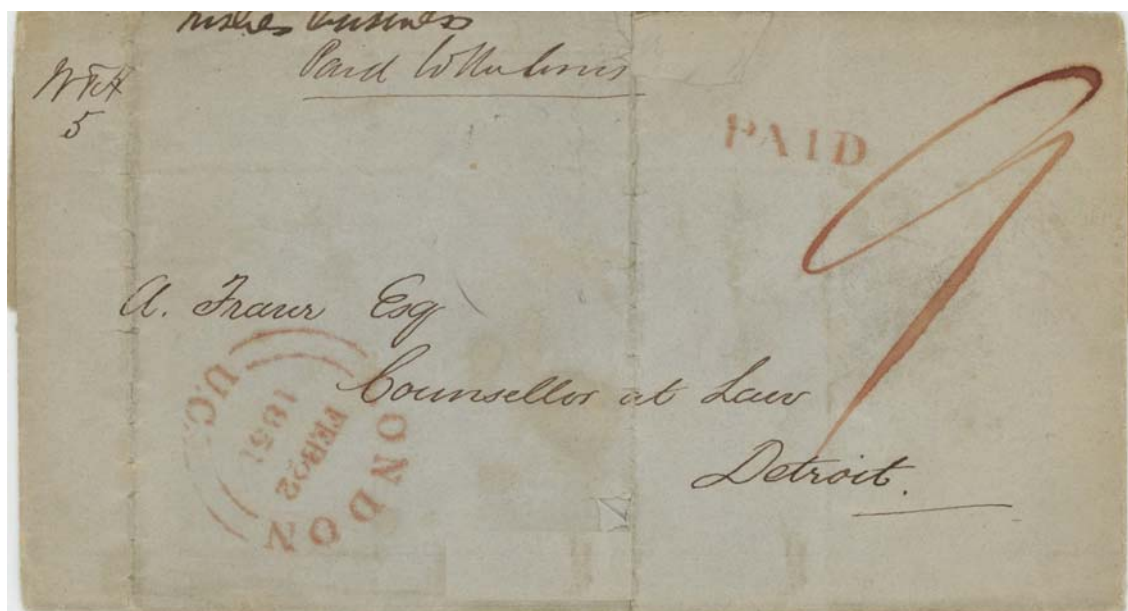 business
Paid
5
PAID
9
A. Fraser Esq
Counsellor at Law
Detroit.
LONDON
U.C.
FEB 02
1851